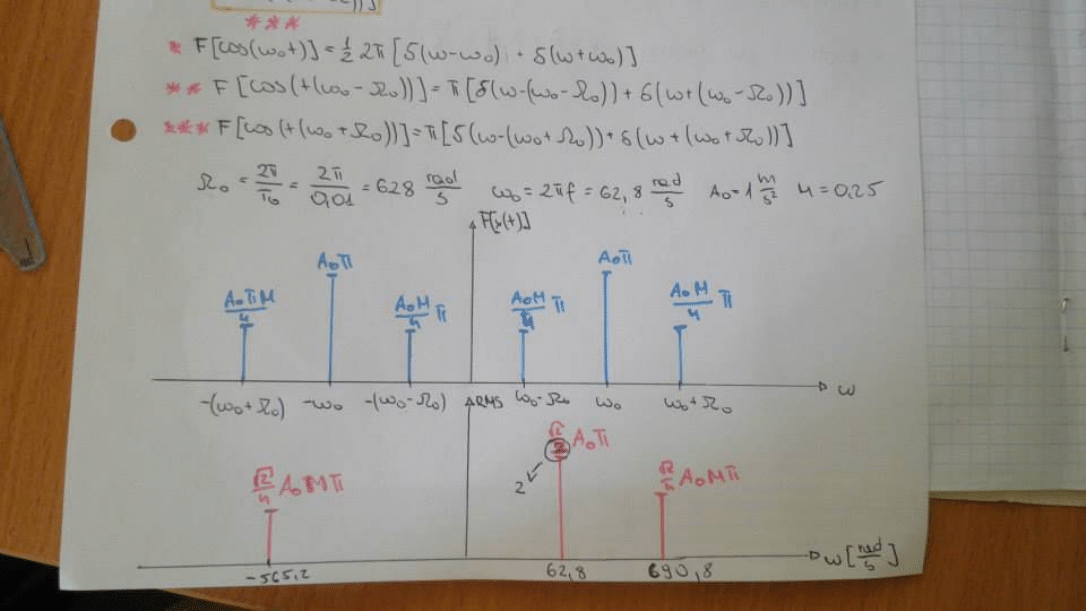 ***
* F[cos(ω₀t)] = 1/2 2π [δ(ω-ω₀) + δ(ω+ω₀)]
** F[cos(t(ω₀-Ω₀))] = π[δ(ω-(ω₀-Ω₀)) + δ(ω+(ω₀-Ω₀))]
*** F[cos(t(ω₀+Ω₀))] = π[δ(ω-(ω₀+Ω₀)) + δ(ω+(ω₀+Ω₀))]
Ω₀ = 2π/T₀ = 2π/0,01 = 628 rad/s ω₀ = 2πf = 62,8 rad/s A₀ = 1 m/s² M = 0,25
F[x(t)]
A₀π A₀π
A₀πM/4 A₀M/4 π A₀M/4 π A₀M/4 π
-(ω₀+Ω₀) -ω₀ -(ω₀-Ω₀) RMS ω₀-Ω₀ ω₀ ω₀+Ω₀ ω
√2/2 A₀π
√2/4 A₀Mπ 2 √2/4 A₀Mπ
-565,2 62,8 690,8 ω[rad/s]